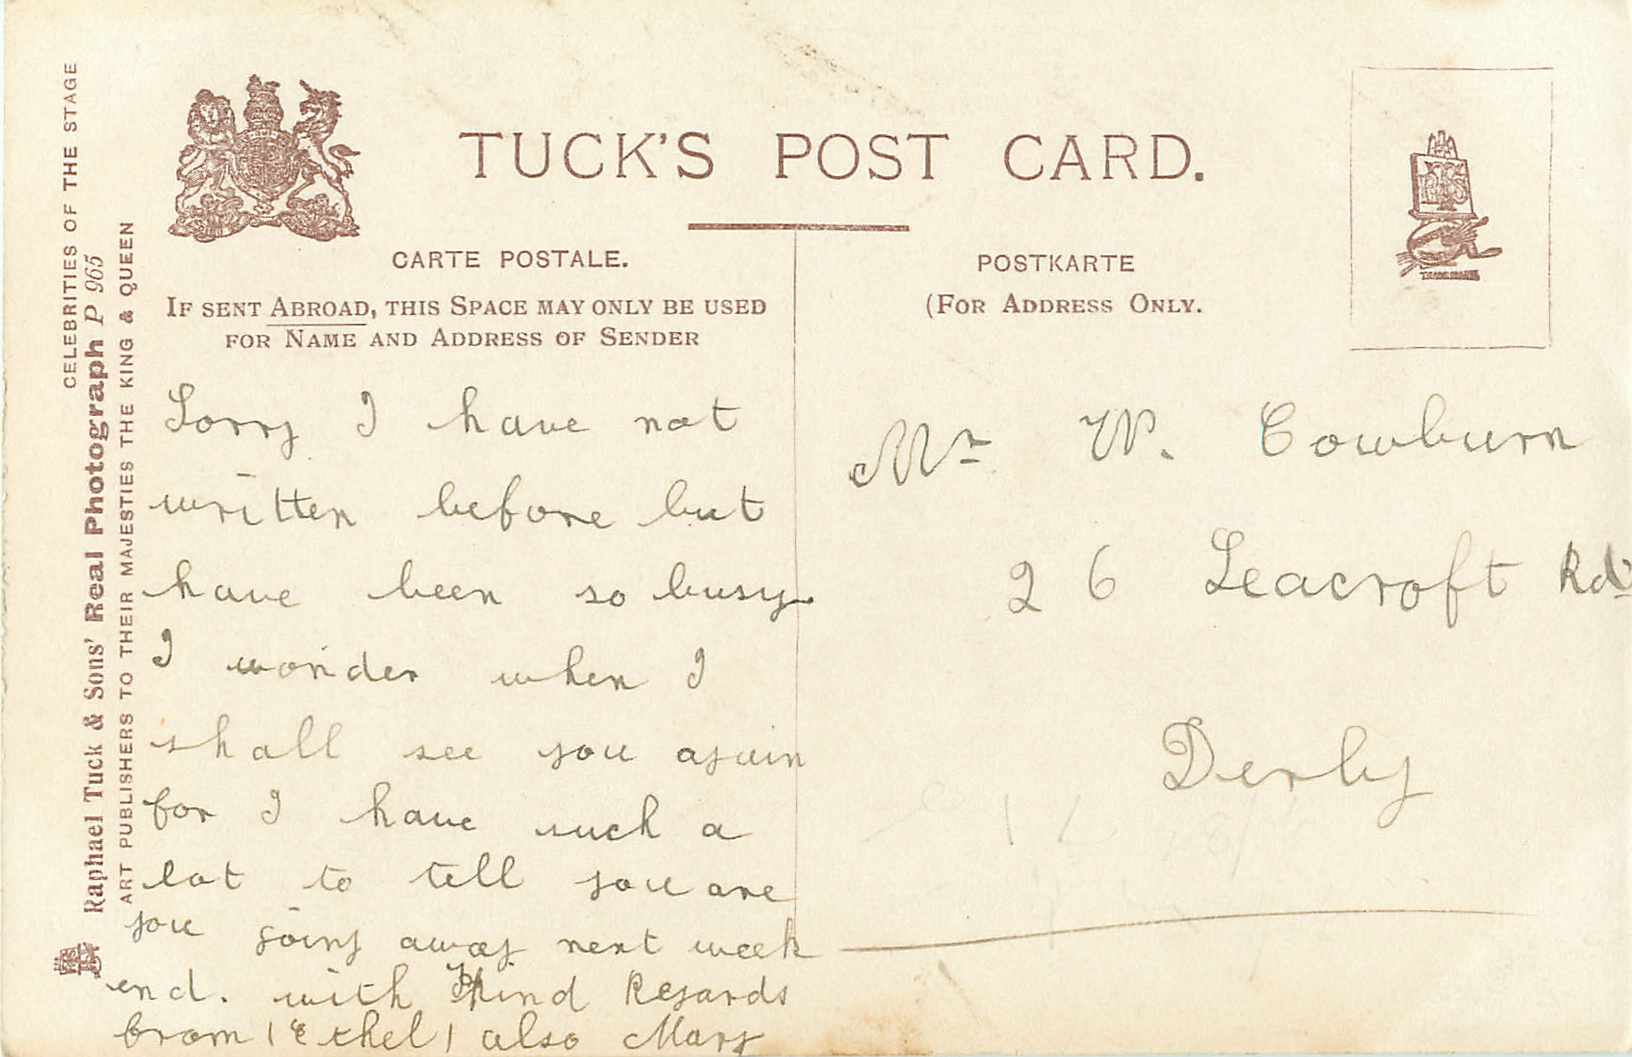 TUCK'S POST CARD.
CARTE POSTALE.
IF SENT ABROAD, THIS SPACE MAY ONLY BE USED
FOR NAME AND ADDRESS OF SENDER
POSTKARTE
(FOR ADDRESS ONLY.
CELEBRITIES OF THE STAGE
Raphael Tuck & Sons' Real Photograph P 965
ART PUBLISHERS TO THEIR MAJESTIES THE KING & QUEEN
Sorry I have not
written before but
have been so busy
I wonder when I
shall see you again
for I have such a
lot to tell you are
you going away next week
end. with Kind Regards
from (Ethel) also Mary
Mr W. Cowburn
26 Leacroft Rd
Derby